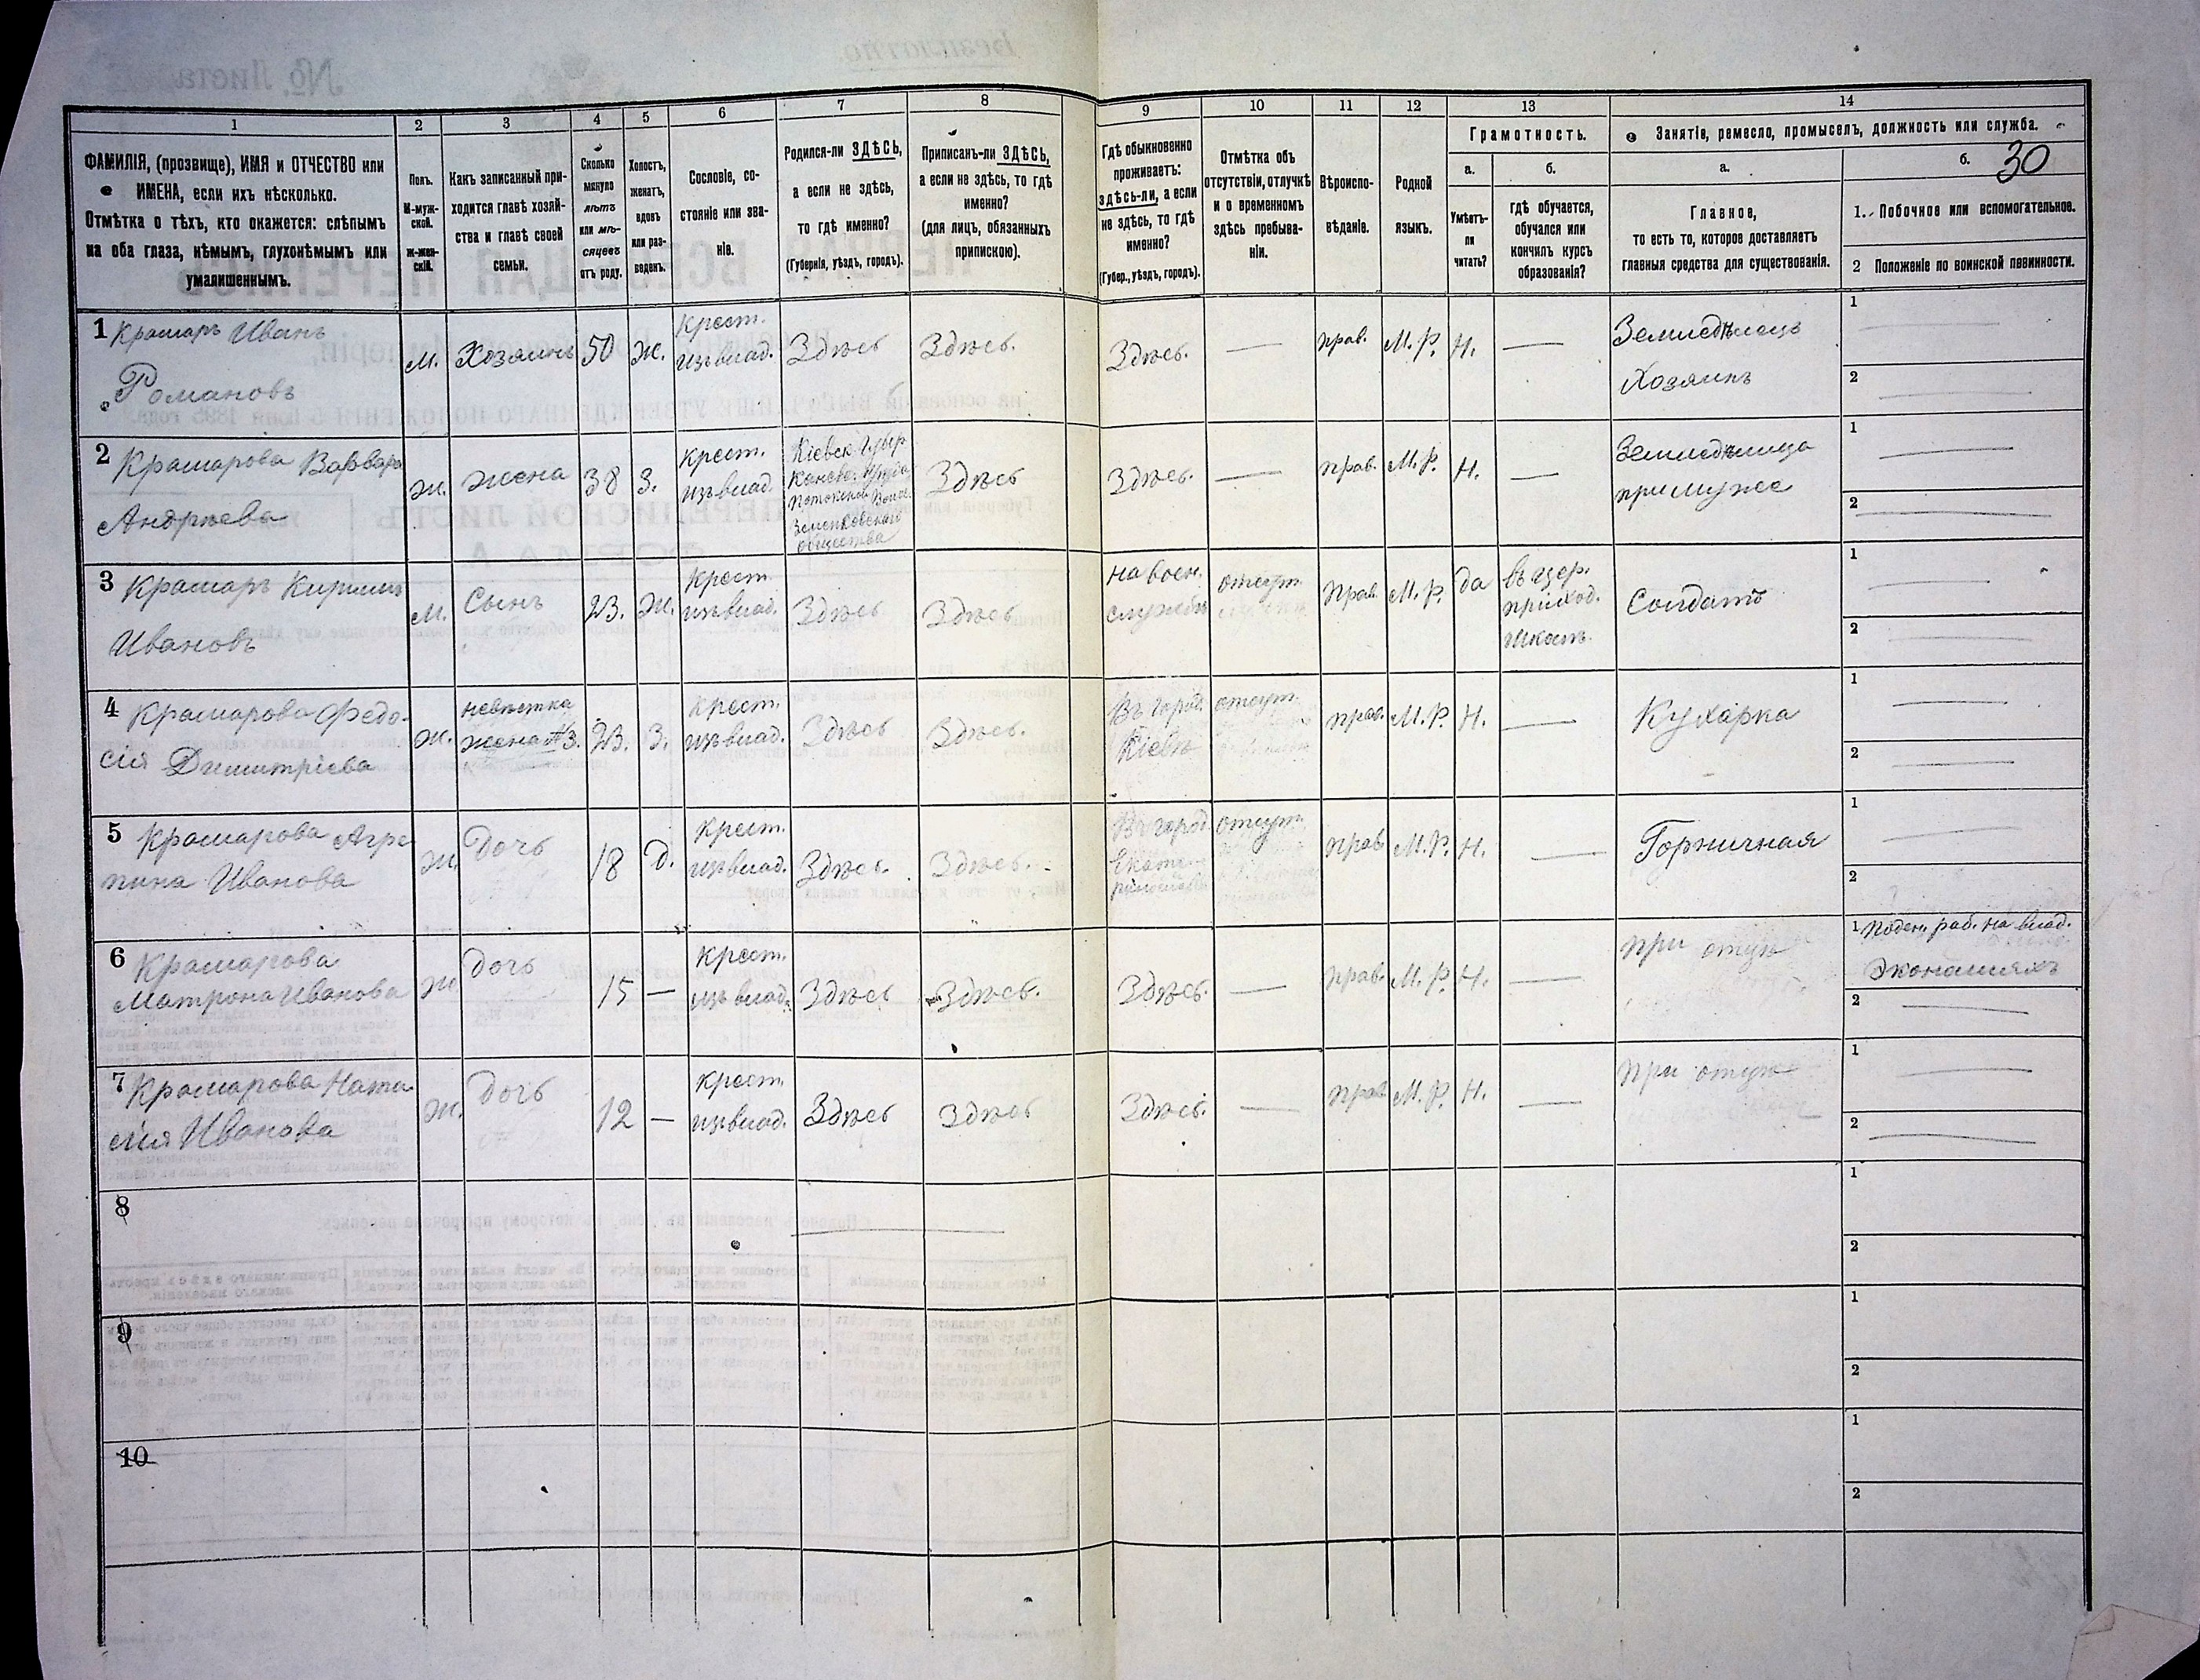 1 2 3 4 5 6 7 8 9 10 11 12 13 14
ФАМИЛІЯ, (прозвище), ИМЯ и ОТЧЕСТВО или
ИМЕНА, если ихъ нѣсколько.
Отмѣтка о тѣхъ, кто окажется: слѣпымъ
на оба глаза, нѣмымъ, глухонѣмымъ или
умалишеннымъ.
Полъ.
М-муж-
ской.
ж-жен-
скій.
Какъ записанный при-
ходится главѣ хозяй-
ства и главѣ своей
семьи.
Сколько
минуло
лѣтъ
или мѣ-
сяцевъ
отъ роду.
Холостъ,
женатъ,
вдовъ
или раз-
веденъ.
Сословіе, со-
стояніе или зва-
ніе.
Родился-ли ЗДѢСЬ,
а если не здѣсь,
то гдѣ именно?
(Губернія, уѣздъ, городъ).
Приписанъ-ли ЗДѢСЬ,
а если не здѣсь, то гдѣ
именно?
(для лицъ, обязанныхъ
припискою).
Гдѣ обыкновенно
проживаетъ:
здѣсь-ли, а если
не здѣсь, то гдѣ
именно?
(Губер., уѣздъ, городъ).
Отмѣтка объ
отсутствіи, отлучкѣ
и о временномъ
здѣсь пребыва-
ніи.
Вѣроиспо-
вѣданіе.
Родной
языкъ.
Грамотность.
а.
Умѣетъ-
ли
читать?
б.
гдѣ обучается,
обучался или
кончилъ курсъ
образованія?
Занятіе, ремесло, промыселъ, должность или служба.
а.
Главное,
то есть то, которое доставляетъ
главныя средства для существованія.
б. 30
1. Побочное или вспомогательное.
2 Положеніе по воинской повинности.
1 Крамаръ Иванъ
Романовъ
М.
Хозяинъ
50
Ж.
Крест.
изъ влад.
Здѣсь
Здѣсь.
Здѣсь.
—
прав.
М. Р.
Н.
—
Земледѣлецъ
Хозяинъ
1
2
2 Крамарова Варвара
Андрѣева
Ж.
Жена
38
З.
Крест.
изъ влад.
Кіевск. Губер
Канев. Уѣзда
Волос.
общества
Здѣсь
Здѣсь.
—
прав.
М. Р.
Н.
—
Земледѣлица
при мужѣ
1
2
3 Крамаръ Кириллъ
Ивановъ
М.
Сынъ
23.
Ж.
Крест.
изъ влад.
Здѣсь
Здѣсь
на воен.
службѣ
отсут.
Прав.
М. Р.
да
въ цер.
приход.
школѣ
Солдатъ
1
2
4 Крамарова Федо-
сія Димитріева
Ж.
невѣстка
жена №3.
23.
З.
крест.
изъ влад.
Здѣсь
Здѣсь.
Въ город.
Кіевѣ
отсут.
прав.
М. Р.
Н.
—
Кухарка
1
2
5 Крамарова Агре
пина Иванова
Ж.
Дочь
18
Д.
Крест.
изъ влад.
Здѣсь.
Здѣсь.
Въ город.
Екате-
ринославѣ
отсут.
прав.
М. Р.
Н.
—
Горничная
1
2
6 Крамарова
Матрона Иванова
Ж
Дочь
15
—
Крест.
изъ влад.
Здѣсь
Здѣсь.
Здѣсь.
—
прав.
М. Р.
Н.
—
при отцѣ
1 Поден. раб. на влад.
Экономіяхъ
2
7 Крамарова Ната
лія Иванова
Ж.
Дочь
12
—
Крест.
изъ влад.
Здѣсь
Здѣсь
Здѣсь.
—
прав
М. Р.
Н.
—
при отцѣ
1
2
8
1
2
9
1
2
10
1
2